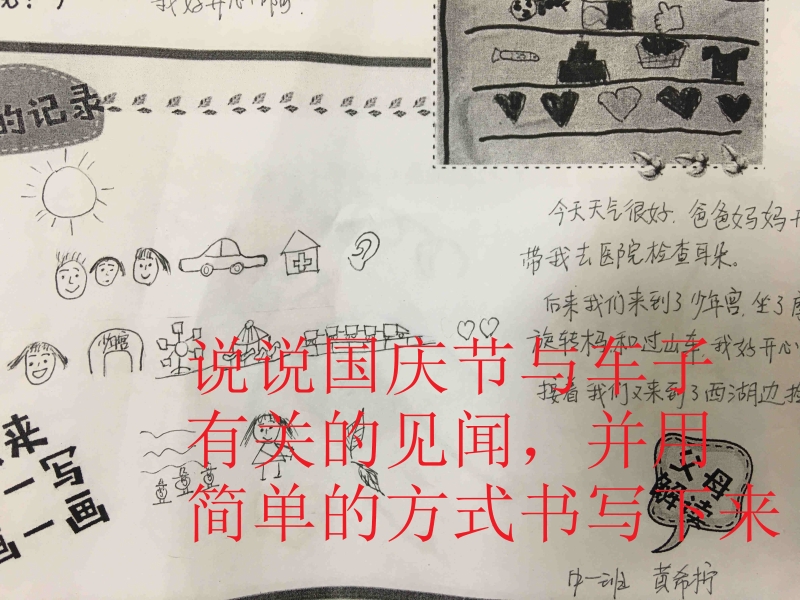 我好开心啊。
的记录
今天天气很好,爸爸妈妈开
带我去医院检查耳朵。
后来我们来到了少年宫,坐了
旋转木马和过山车,我好开心
接着我们又来到了西湖边
少年宫
说说国庆节与车子
有关的见闻，并用
简单的方式书写下来
来
一写
画一画
父母
解读
中一班 黄希柠